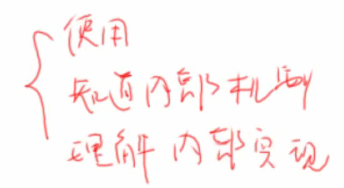 使用
知道内部机制
理解内部实现